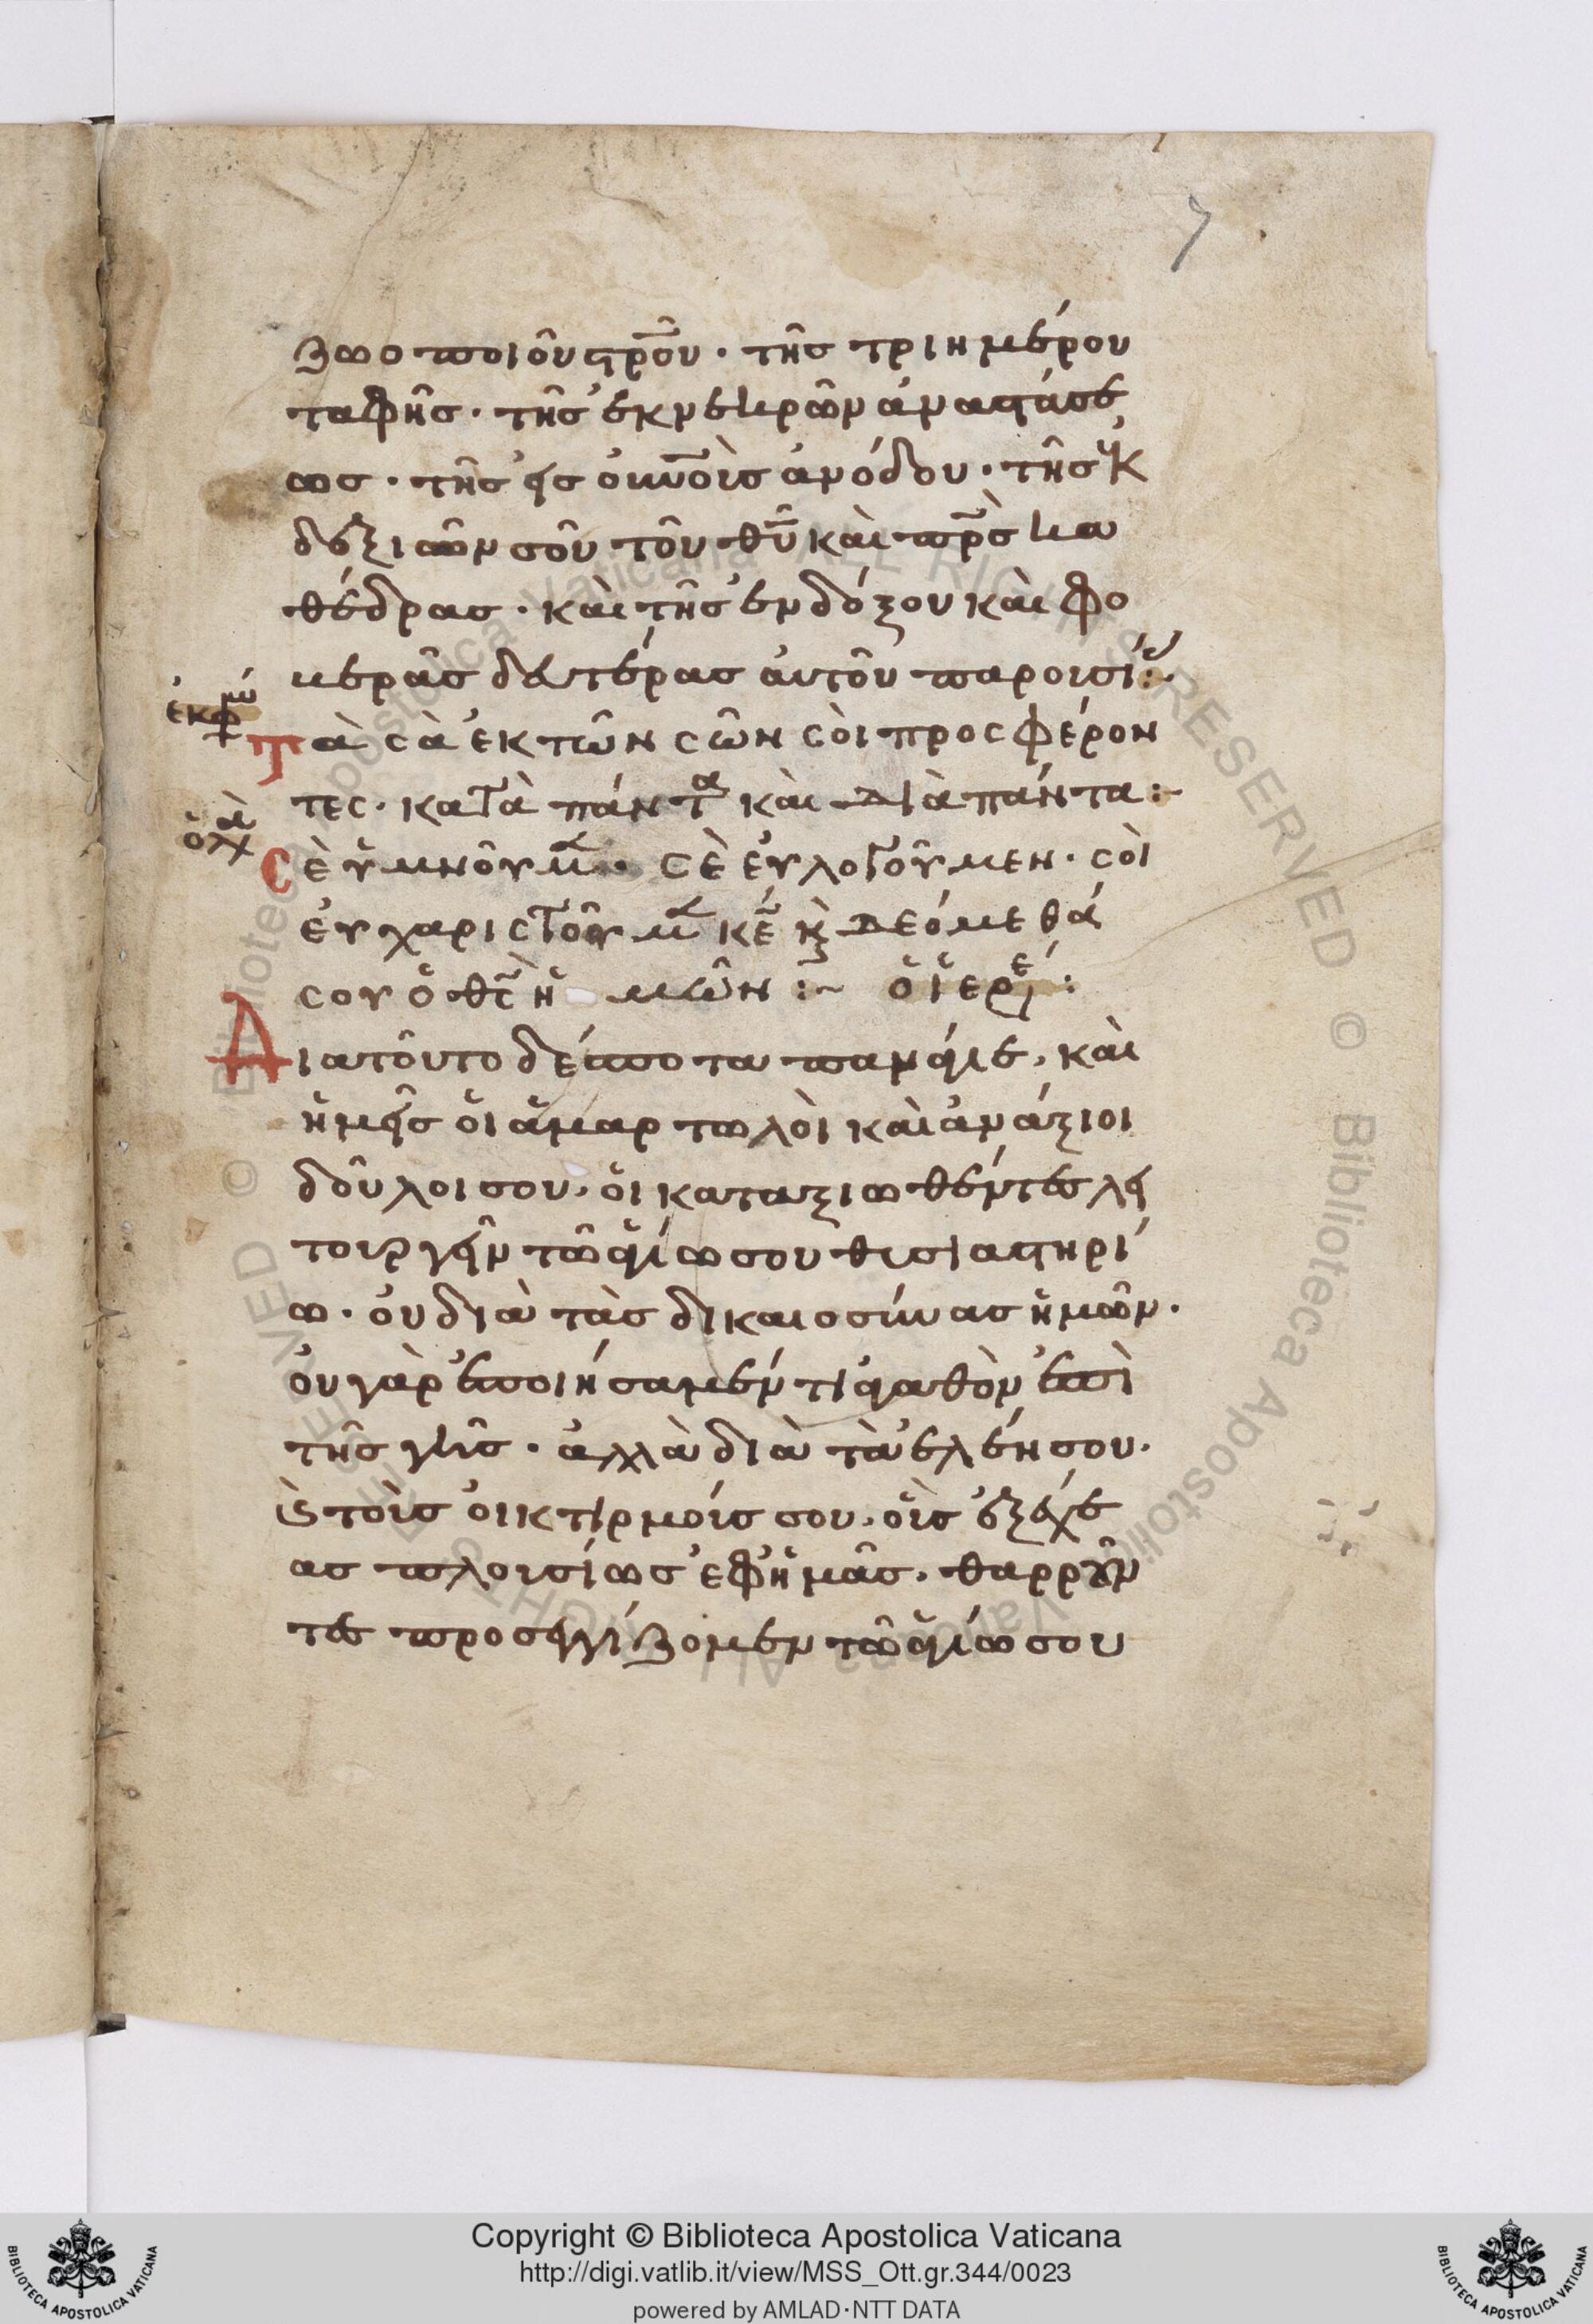 7
ζωοποιοῦ στρ̅οῦ · τῆς τριημέρου
ταφῆς · τῆς ἐκ νεκρῶν ἀναστάσε
ως · τῆς εἰς οὐν̅οὺς ἀνόδου · τῆς ἐκ
δεξιῶν σοῦ τοῦ θῦ̅ καὶ πρ̅ς κα
θέδρας · καὶ τῆς ἐνδόξου καὶ φο
βερᾶς δευτέρας αὐτοῦ παρουσί :~
ἐκφ
Τὰ σὰ ἐκ τῶν σῶν σοὶ προσφέρον
τες · κατὰ πάντα καὶ διὰ πάντα :~
ὁ λα
Σὲ ὑμνοῦμ · σὲ εὐλογοῦμεν · σοὶ
εὐχαριστοῦμ κε̅ κ δεόμεθά
σου ὁ θς̅ ἡμῶν :~ ὁ ἱερε :
Διατοῦτο δέσποτα πανάγιε, καὶ
ἡμεῖς οἱ ἁμαρτωλοὶ καὶ ἀνάξιοι
δοῦλοι σου, οἱ καταξιωθέντες λει
τουργεῖν τῶ ἁγίω σου θυσιαστηρί
ω · οὐ διὰ τὰς δικαιοσύνας ἡμῶν ·
οὐ γὰρ ἐποιήσαμέν τι ἀγαθὸν ἐπὶ
τῆς γῆς · ἀλλὰ διὰ τὰ ἐλέη σου ·
κ τοὺς οἰκτιρμούς σου, οὓς ἐξέχε
ας πλουσίως ἐφ' ἡμᾶς · θαρροῦν
τες προσεγγίζομεν τῶ ἁγίω σου
Copyright © Biblioteca Apostolica Vaticana
http://digi.vatlib.it/view/MSS_Ott.gr.344/0023
powered by AMLAD·NTT DATA